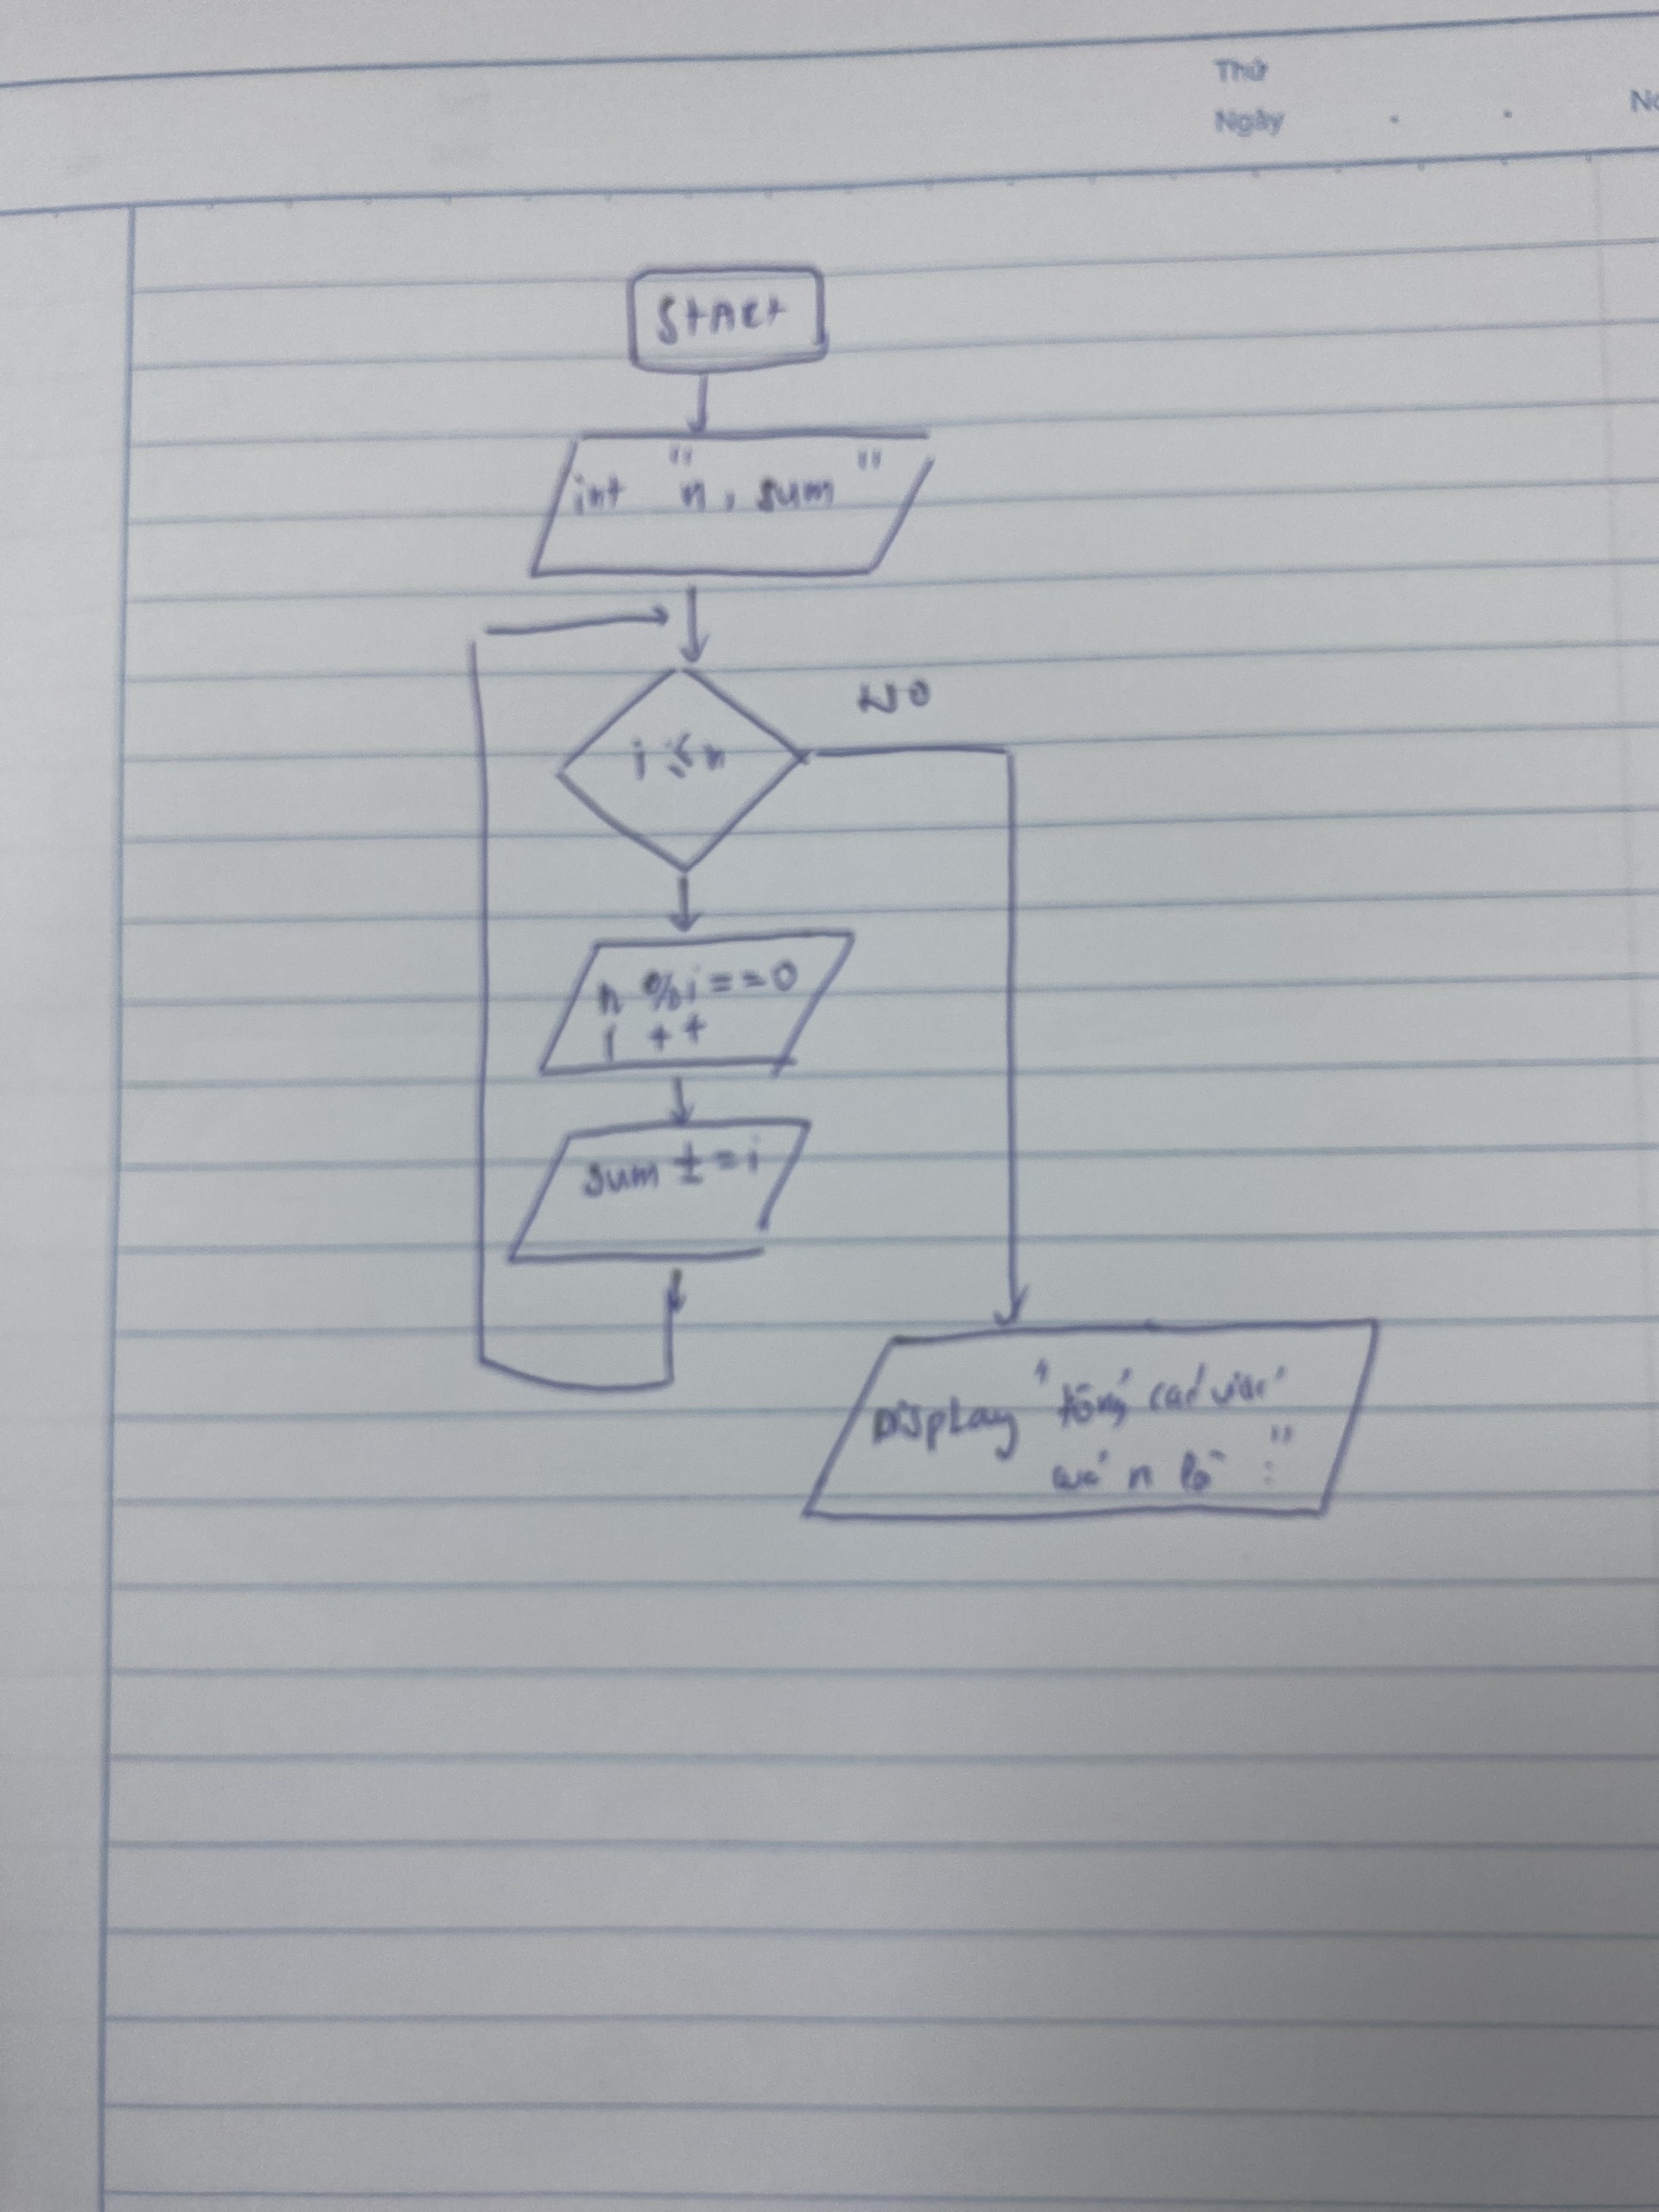 Thứ
Ngày
No
Start
int "n, sum"
i ≤ n
NO
n % i == 0
i ++
sum += i
Display "tổng các ước
của n là : "